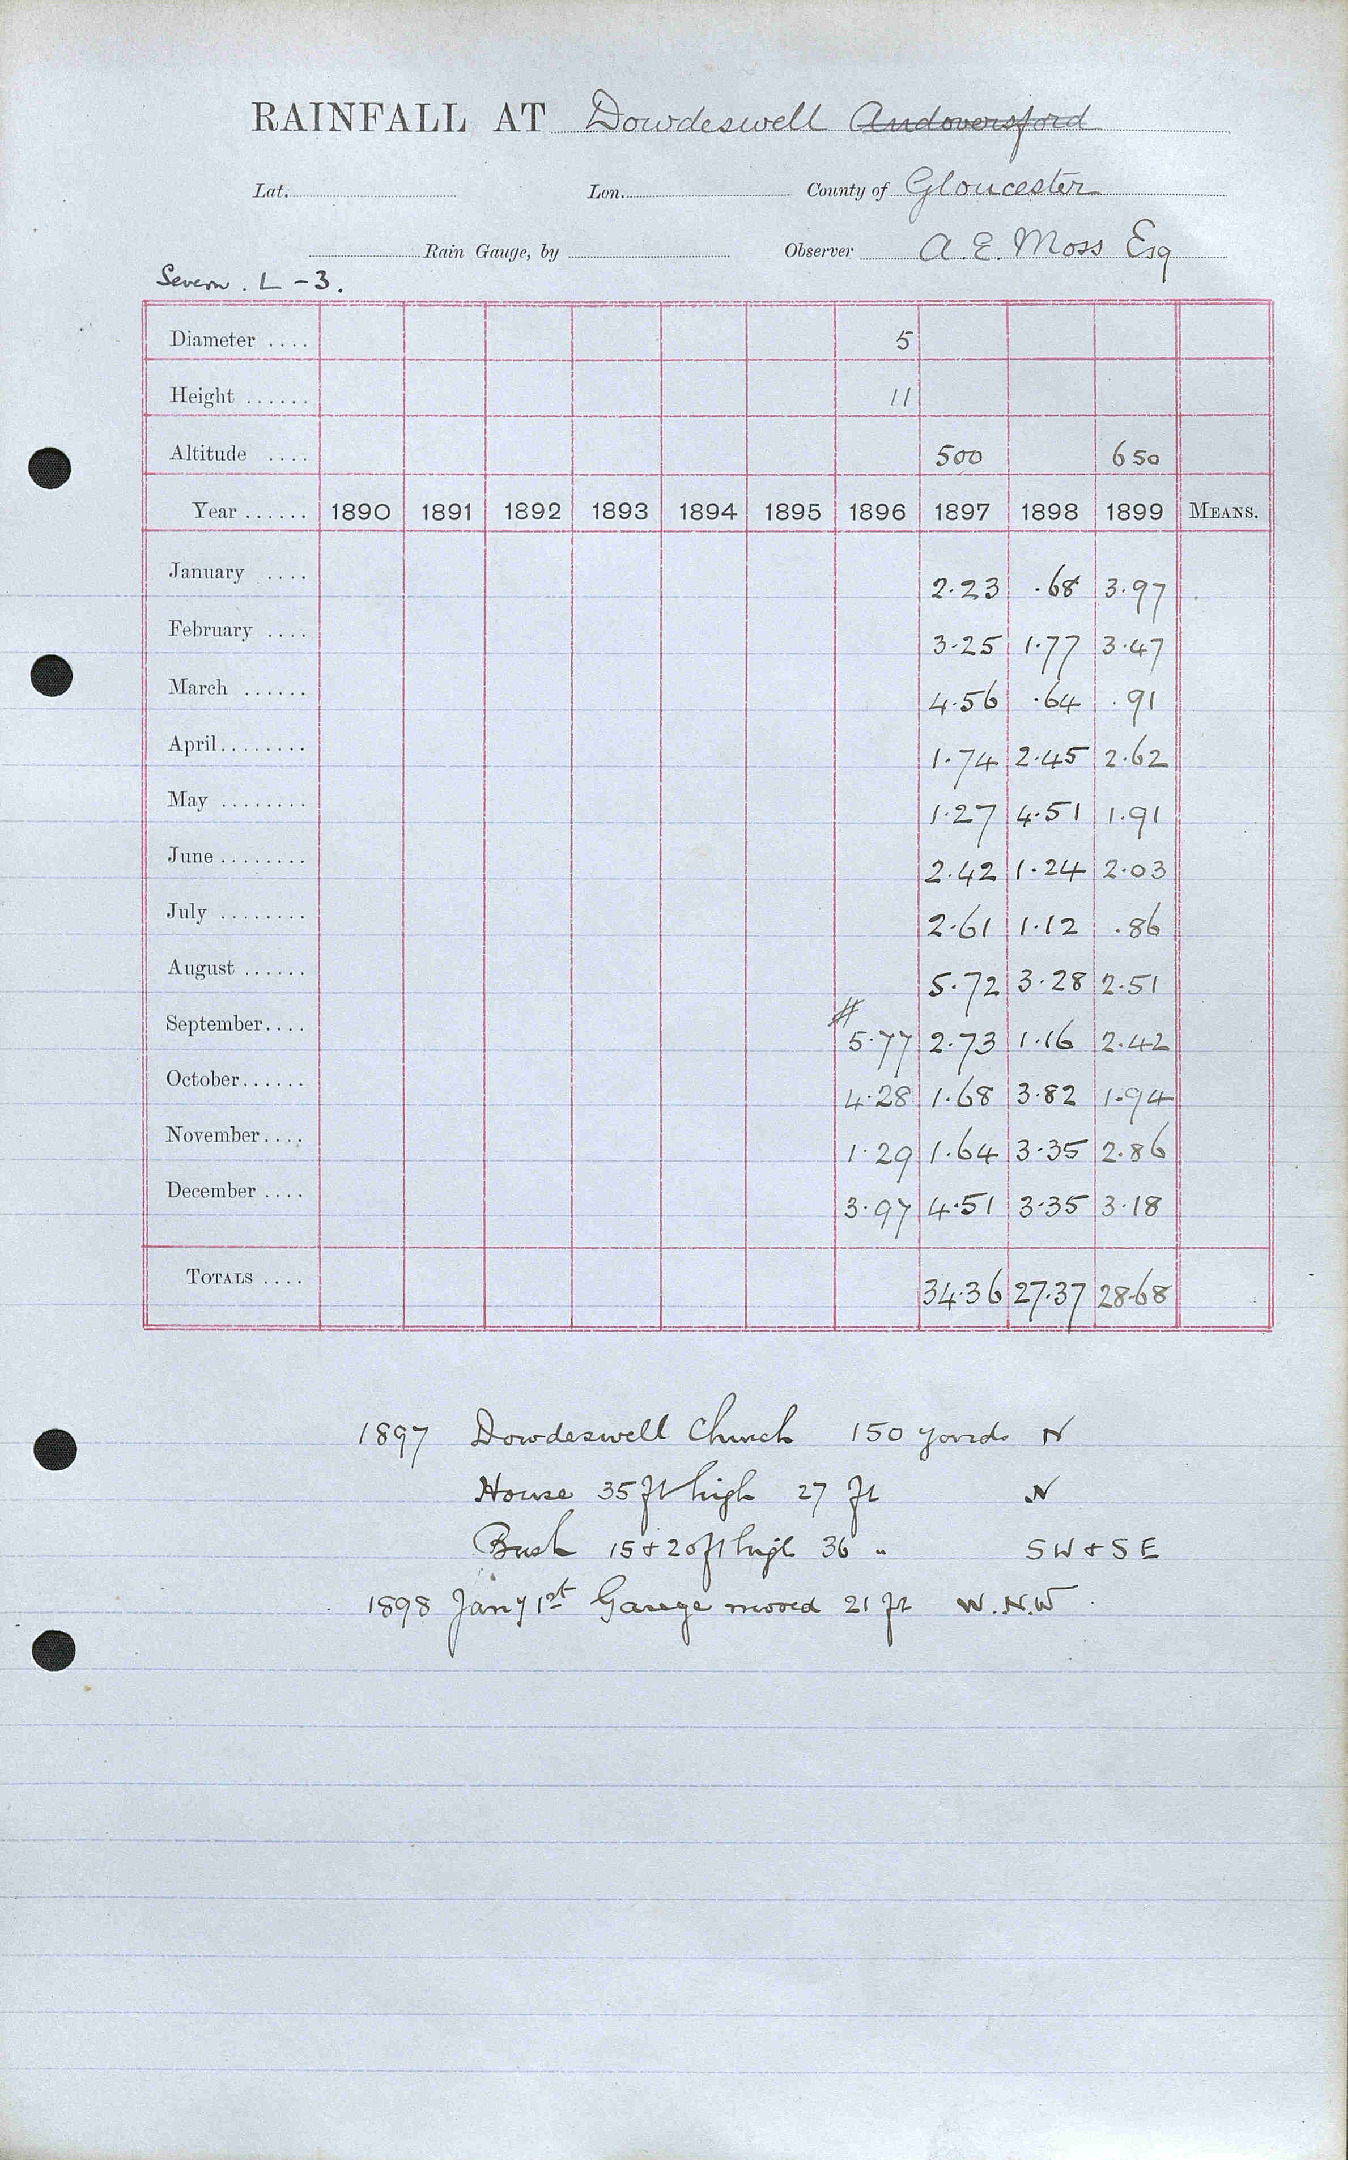 RAINFALL AT Dowdeswell Andoversford
Lat. Lon. County of Gloucester
Rain Gauge, by Observer A. E. Moss Esq
Severn. L - 3.
Diameter .... 5
Height ...... 11
Altitude .... 500 650
Year ...... 1890 1891 1892 1893 1894 1895 1896 1897 1898 1899 MEANS.
January .... 2.23 .68 3.97
February .... 3.25 1.77 3.47
March ...... 4.56 .64 .91
April........ 1.74 2.45 2.62
May ........ 1.27 4.51 1.91
June ........ 2.42 1.24 2.03
July ........ 2.61 1.12 .86
August ...... 5.72 3.28 2.51
#
September.... 5.77 2.73 1.16 2.42
October...... 4.28 1.68 3.82 1.94
November.... 1.29 1.64 3.35 2.86
December .... 3.97 4.51 3.35 3.18
TOTALS .... 34.36 27.37 28.68
1897 Dowdeswell Church 150 yards N
House 35 ft high 27 ft N
Bush 15 & 20 ft high 36 " SW & SE
1898 Jany 1st Gauge moved 21 ft W.N.W.